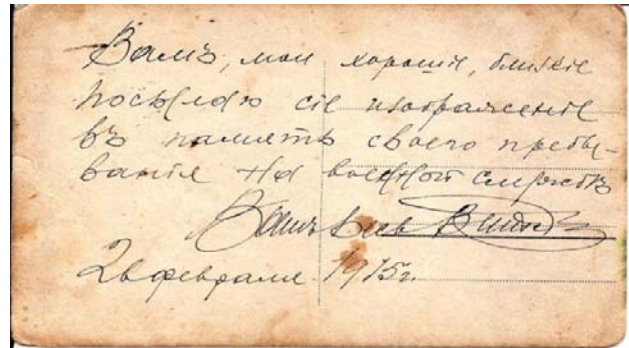 Вамъ, мои хорошіе, близкіе
посылаю сіе изображеніе
въ память своего пребы-
ванія на военной службѣ
Вашъ
26 февраля 1915г.